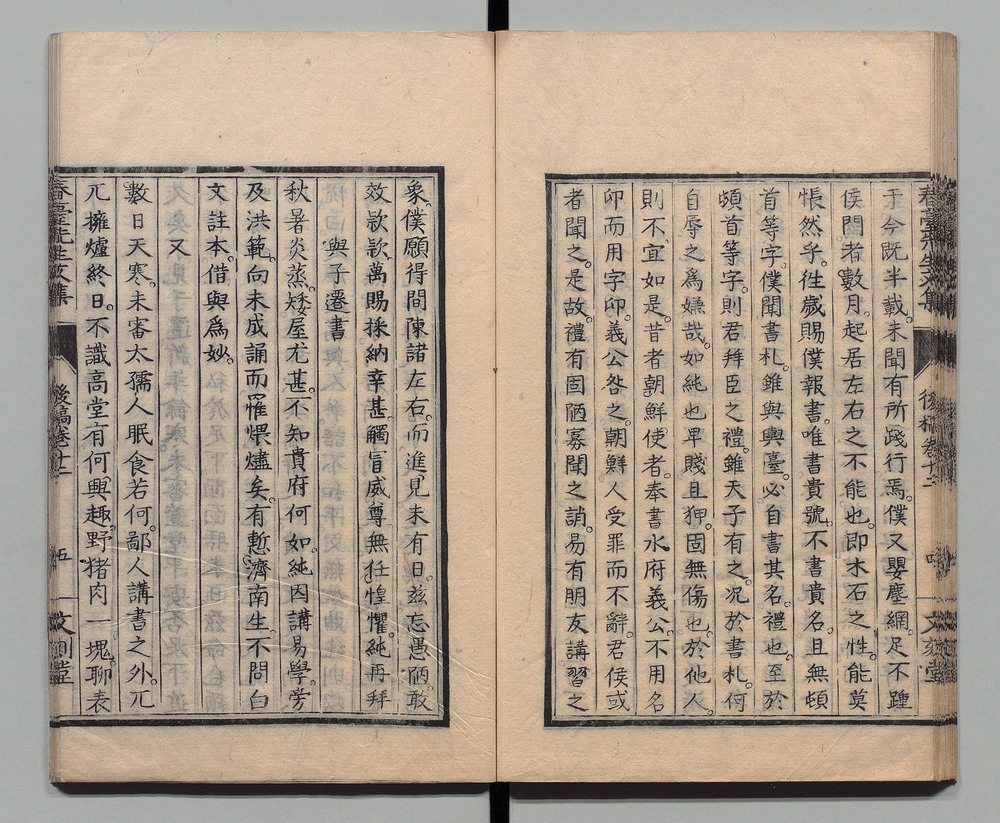 于今既半載。未聞有所踐行焉。僕又嬰塵網。足不踵
侯閽者數月。起居左右之不能也。即木石之性。能莫
悵然乎。徃歲賜僕報書。唯書貴號。不書貴名。且無頓
首等字。僕聞書札。雖與輿臺。必自書其名。禮也。至於
頓首等字。則君拜臣之禮。雖天子有之。况於書札。何
自辱之爲嫌哉。如純也卑賤且狎。固無傷也。於他人。
則不宜如是。昔者朝鮮使者。奉書水府義公。不用名
卬而用字卬。義公咎之。朝鮮人受罪而不辭。君侯或
者聞之。是故禮有固陋寡聞之誚。易有朋友講習之
象。僕願得間陳諸左右。而進見未有日。兹忘愚陋。敢
效款款。萬賜採納幸甚。觸冒威尊無任惶懼。純再拜
與子遷書
秋暑炎蒸。矮屋尤甚。不知貴府何如。純因講易學。旁
及洪範。向未成誦而罹煨燼矣。有慙濟南生。不問白
文註本。借與爲妙。
又
數日天寒。未審太孺人眠食若何。鄙人講書之外。兀
兀擁爐終日。不識高堂有何興趣。野猪肉一塊。聊表
春臺先生文集
後稿卷十二
五
文刻堂
春臺先生文集
後稿卷十二
文刻堂